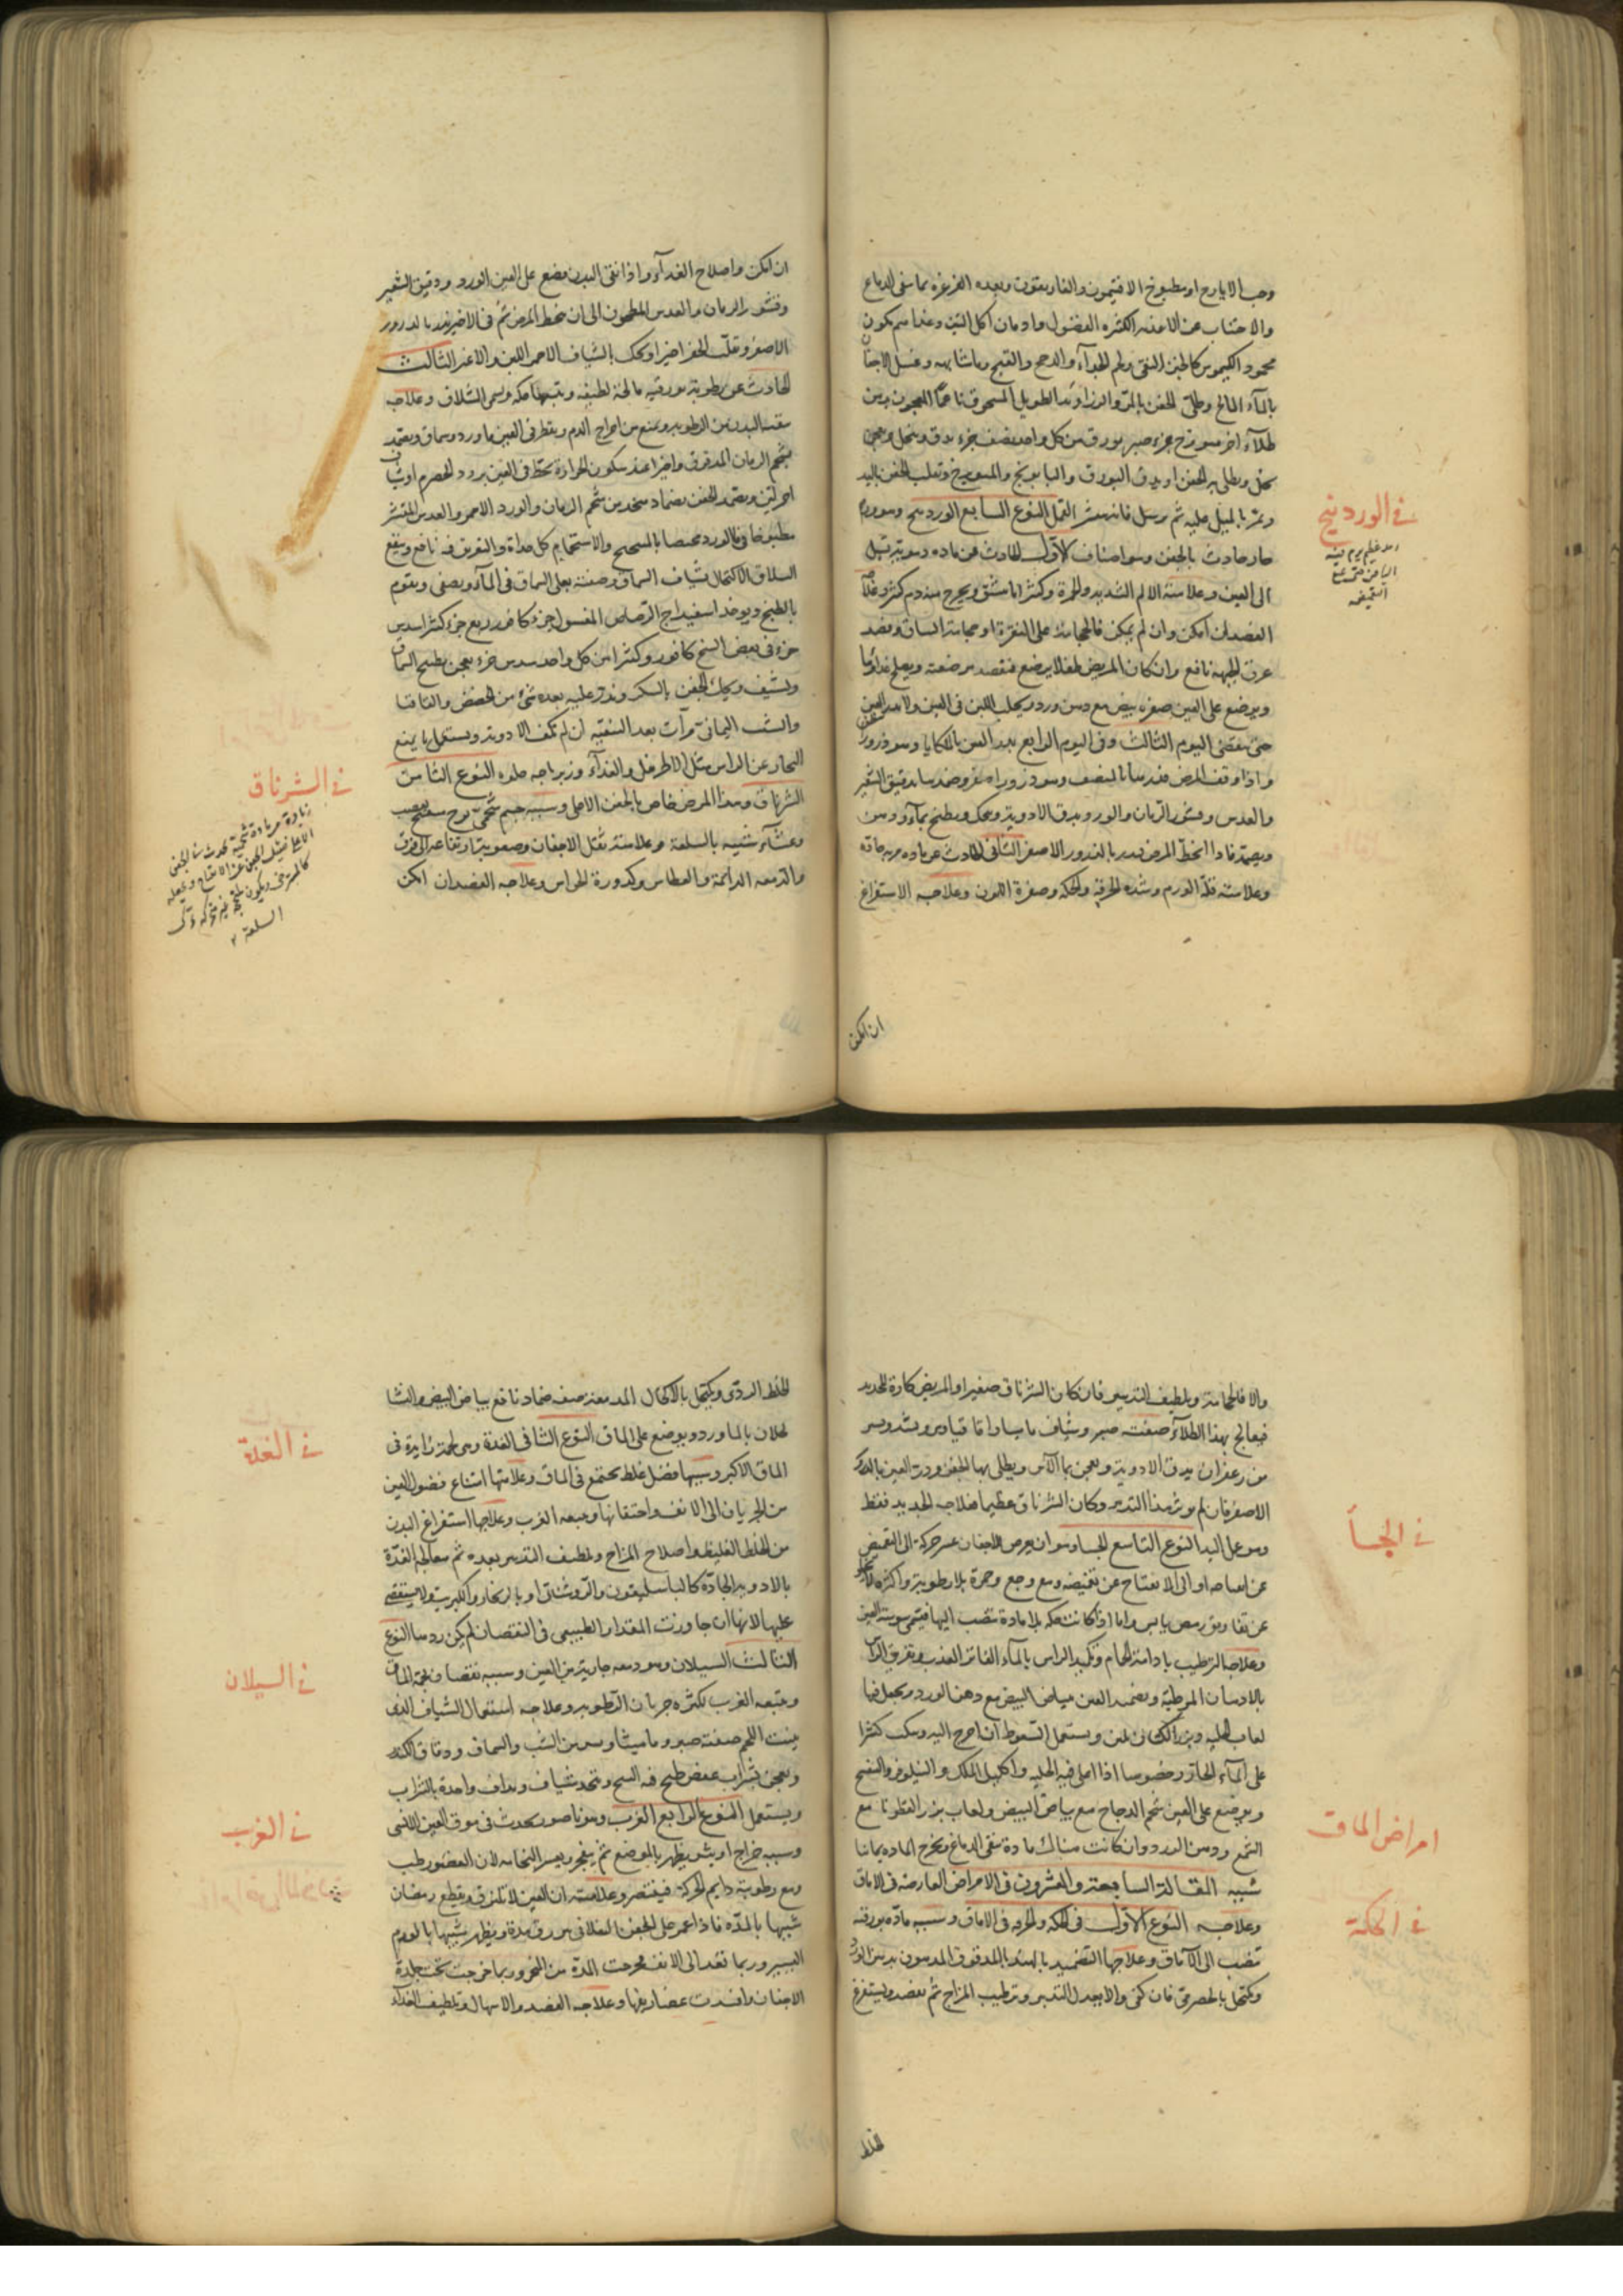 وحب الايارج او مطبوخ الافتيمون والغاريقون وبعده الغرغره بما ينقى الدماغ
والاجتناب عن الاغذيه الكثيره الفضول وادمان اكل التين وغذاهم يكون
محمود الكيموس كالخبز النقى ولحم الجداء والدجج والقبج وما شابهه وغسل الاجفان
بالماء المالح وطلى الجفن بالمر والزراوند الطويل المسحوق ناعما المعجون بدهن
طلاء اخر ميويزج جزء صبر بورق من كل واحد نصف جزء يدق وينخل ويعجن
بخل ويطلى به الجفن او يدق البورق والبابونج والميويزج وتقلب الجفن باليد
وتمر بالميل عليه ثم يرسل فانه ينثر القمل النوع السابع الوردينج وهو ورم
حار حادث بالجفن وهو اصناف الاول الحادث عن ماده دمويه تقبل
الى العين وعلامته الالم الشديد والحمرة وكثيرا ما ينشق ويخرج منه دم كثير وعلاجه
الفصد ان امكن وان لم يمكن فالحجامة على النقرة او حجامة الساق وفصد
عرق الجبهه نافع وان كان المريض طفلا يرضع فتفصد مرضعته ويصلح غذاؤها
ويوضع على العين صفره بيض مع دهن ورد ويحلب اللبن فى العين
حتى ينقضى اليوم الثالث وفى اليوم الرابع يذر العين بالملكايا وهو ذرور
واذا وقف المرض فذرها بالمنصف وهو ذرور اصفر وضمدها بدقيق الشعير
والعدس وقشور الرمان والورد يدق الادوية ويحك ويطبخ بماء ودهن
ويضمد فاذا انحط المرض فذر بالذرور الاصفر الثانى الحادث عن ماده مريه حادة
وعلامته قلة الورم وشده الحرقة والحكه وصفرة اللون وعلاجه الاستفراغ
فى الوردينج
ان امكن
ان امكن واصلاح الغذاء واذا نقى البدن فضع على العين الورد ودقيق الشعير
وقشور الرمان والعدس المطحون الى ان ينحط المرض ثم فى الاخير يذر بالذرور
الاصفر وتقلب الجفن اخيرا ويحك بالشياف الاحمر اللين والاغبر الثالث
الحادث عن رطوبة بورقيه مالحة لطيفه ويتبعها حكه ويسمى السلاق وعلاجه
تنقيه البدن من الرطوبه ويمنع من اخراج الدم ويقطر فى العين ماورد وسماق ويضمد
بشحم الرمان المدقوق واخيرا عند سكون الحرارة يحك فى العين برود الحصرم او شياف
احمر لين ويضمد الجفن بضماد يتخذ من شحم الرمان والورد الاحمر والعدس المقشر
مطبوخا فى ماالورد مخيضا بالميبختج والاستحمام كل غداة والتعريق فيه نافع وينفع
السلاق الاكتحال بشياف السماق وصفته يغلى السماق فى الماء ويصفى ويقوم
بالطبخ ويوخذ اسفيداج الرصاص المغسول جزء كافور ربع جزء كثيرا سدس
جزء وفى بعض النسخ كافور وكثيرا من كل واحد سدس جزء يعجن بطبيخ السماق
ويشيف ويحك الجفن بالسكر ويذر عليه بعده شىء من الحضض والقاقيا
والشب اليمانى مرات بعد التنقيه ان لم تكف الادوية ويستعمل ما يمنع
البخار عن الراس مثل الاطريفل والغذاء زيرباجه حلوه النوع الثامن
الشرناق وهذا المرض خاص بالجفن الاعلى وسببه جسم شحمى لزج منتسج بعصب
وغشاء شبيه بالسلعة وعلامته ثقل الاجفان وصعوبة ارتفاعه الى فوق
والدمعه الدائمة والعطاس وكدورة الحواس وعلاجه الفصد ان امكن
فى الشرناق
زيادة من مادة شحمية تحدث فى الجفن
الاعلى فيثقل الجفن عن الانفتاح ويجعله
كالمسترخى ويكون ملتحجا غير متحرك تحرك
السلعة
والا فالحجامة وتلطيف التدبير فان كان الشرناق صغيرا او المريض كارة للحديد
فيعالج بهذا الطلاء صفته صبر وشياف ماميثا واقاقيا ومر وشىء يسير
من زعفران يدق الادوية ويعجن بماء الآس ويطلى بها الجفن وذر العين بالذرور
الاصفر فان لم يوثر هذا التدبير وكان الشرناق عظيما فعلاجه الحديد فقط
وهو عمل اليد النوع التاسع الجسا وهو ان يعرض للاجفان عسر حركة الى التغميض
عن انفتاحه او الى الانفتاح عن تغميضه ومع وجع وحمرة بلا رطوبة واكثره لا يخلو
عن تفاريق رمص يابس واما اذا كانت حكه بلا مادة تنصب اليها فيسمى يبوسة العين
وعلاجه الترطيب بادامة الحمام وتكميد الراس بالماء الفاتر العذب وتغريق الراس
بالادهان المرطبة وتضميد العين ببياض البيض مع دهن الورد ويجعل فيها
لعاب الحلبه وبزر الكتان بلبن ويستعمل السعوط ان احتيج اليه ويكب كثيرا
على الماء الحار وخصوصا اذا اغلى فيه الحلبه واكليل الملك والنيلوفر والبنفسج
ويوضع على العين شحم الدجاج مع بياض البيض ولعاب بزر القطونا مع
الشمع ودهن الورد وان كانت هناك مادة تنقى الدماغ ويخرج الماده بما لنا
شبيه المقالة السابعة والعشرون فى الامراض العارضه فى الاماق
وعلاجه النوع الاول فى الحكه والحرقه فى الاماق وسببه مادة بورقيه
تنصب الى الآماق وعلاجها التضميد بالهندبا المدقوق المدهون بدهن الورد
ويكتحل بالحصرمى فان كفى والا يعدل التدبير وترطيب المزاج ثم يفصد ويستفرغ
فى الجسأ
امراض الماق
فى الحكة
الخلط
الخلط الردى ويكتحل بالاكحال المدمعة صفة ضماد نافع بياض البيض والنشا
يحلان بالماورد ويوضع على الماق النوع الثانى الغدة وهى لحمة زايدة فى
الماق الاكبر وسببها فضل غلظ يجتمع فى الماق وعلامتها امتناع فضول العين
من الجريان الى الانف واحتقانها ويتبعه الغرب وعلاجها استفراغ البدن
من الخلط الغليظ واصلاح المزاج وتلطيف التدبير بعده ثم معالجه الغدة
بالادويه الحادة كالباسليقون والروشنايى او بالزنجار والكبريت ولا يستقصى
عليها لانها ان جاوزت المقدار الطبيعى فى النقصان لم يمكن ردها النوع
الثالث السيلان وهو دمعه جارية من العين وسببه نقصان لحمة الماق
ويتبعه الغرب لكثره جريان الرطوبه وعلاجه استعمال الشياف الذى
ينبت اللحم صفته صبر وماميثا ويسير من الشب والسماق ودقاق الكندر
ويعجن بشراب عفص طبخ فيه السح ويتخذ شياف ويداف واحدة بالشراب
ويستعمل النوع الرابع الغرب وهو ناصور يحدث فى موق العين الانسى
وسببه خراج او بثر يظهر بالموضع ثم ينفجر ويعسر التحامه لان العضو رطب
ومع رطوبته دايم الحركة فيتنصر وعلامته ان العين لا تلتزق ويقطع رمضان
شبيها بالمدة فاذا غمر على الجفن الفلانى يبرز مدة ويظهر شبيها بالورم
اليسير وربما نفذ الى الانف فخرجت المدة من المنخر وربما خرجت تحت جلدة
الاجفان وافسدت غضاريفها وعلاجه الفصد والاسهال وتلطيف الغذاء
فى الغدة
فى السيلان
فى الغرب